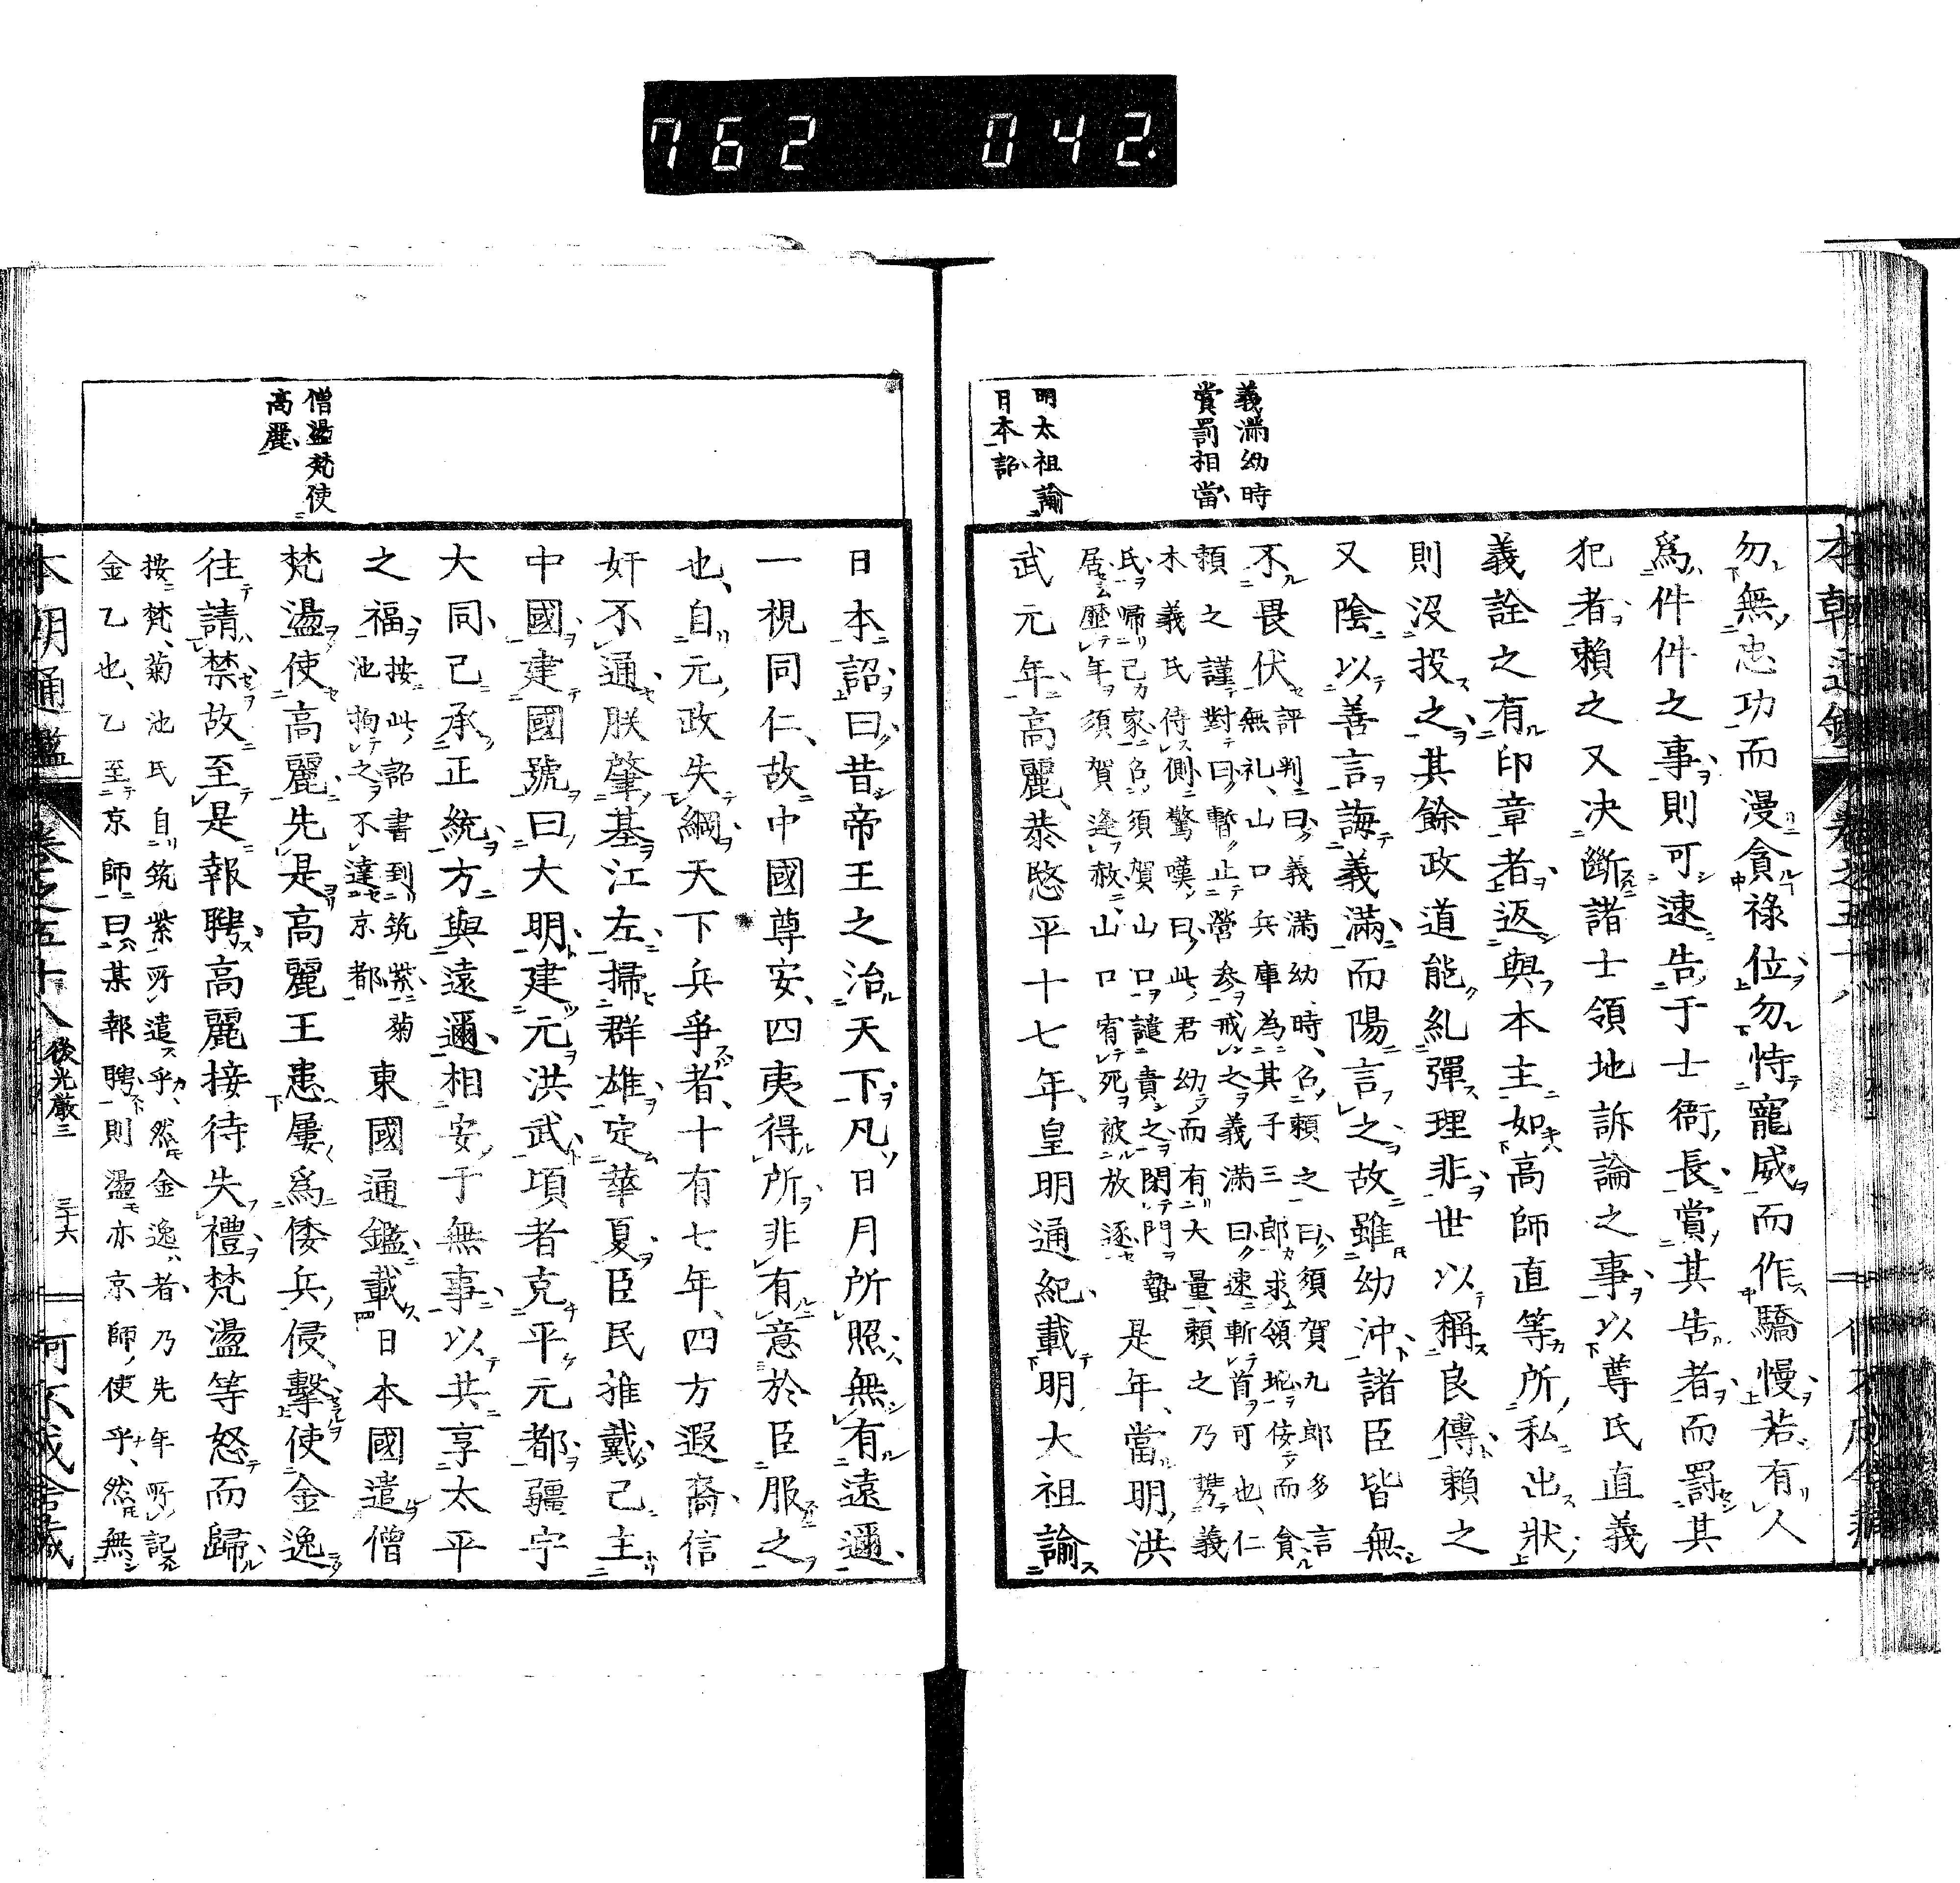 762 042.
義滿幼時
賞罰相當
明太祖諭
日本詔
勿無忠功而漫貪祿位勿恃寵威而作驕慢若有人
爲件件之事則可速告于士衙長賞其告者而罰其
犯者賴之又決斷諸士領地訴論之事以尊氏直義
義詮之有印章者返與本主如高師直等所私出狀
則沒投之其餘政道能糺彈理非世以稱良傳賴之
又陰以善言誨義滿而陽言之故雖幼沖諸臣皆無
不畏伏
評判曰義滿幼時召賴之曰須賀九郎多言
無礼山口兵庫為其子三郎求領地倿而貪
賴之謹對曰暫止營参戒之義滿曰速斬首可也仁
木義氏侍側驚嘆曰此君幼而有大量賴之乃携義
氏歸己家召須賀山口譴責之閉門蟄
居歷年須賀逢赦山口宥死被放逐
是年當明洪
武元年高麗恭愍平十七年皇明通紀載明大祖諭
僧盪梵使
高麗
日本詔曰昔帝王之治天下凡日月所照無有遠邇
一視同仁故中國尊安四夷得所非有意於臣服之
也自元政失綱天下兵爭者十有七年四方遐裔信
奸不通朕肇基江左掃群雄定華夏臣民推戴己主
中國建國號曰大明建元洪武頃者克平元都疆宇
大同已承正統方與遠邇相安于無事以共享太平
之福
按此詔書到筑紫菊
池拘之不達京都
東國通鑑載日本國遣僧
梵盪使高麗先是高麗王患屢爲倭兵侵擊使金逸
往請禁故至是報聘高麗接待失禮梵盪等怒而歸
按梵菊池氏自筑紫所遣乎然金逸者乃先年所記
金乙也乙至京師曰某報聘則盪亦京師使乎然無
本朝通鑑 卷之五十八 後光嚴三 三十六